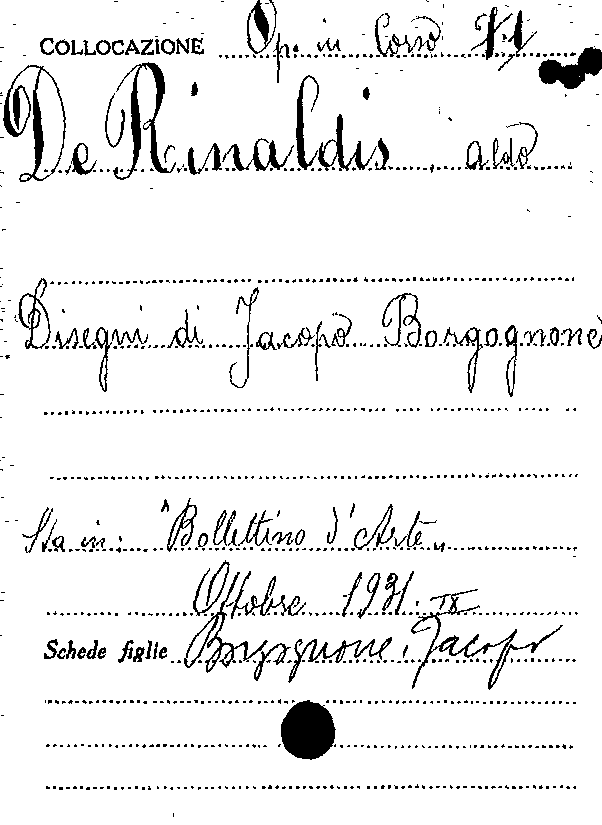 COLLOCAZIONE Op. in Corso V.1
De Rinaldis, Aldo
Disegni di Jacopo Borgognone
Sta in: "Bollettino d'Arte„
Ottobre 1931. IX
Schede figlie Borgognone, Jacopo